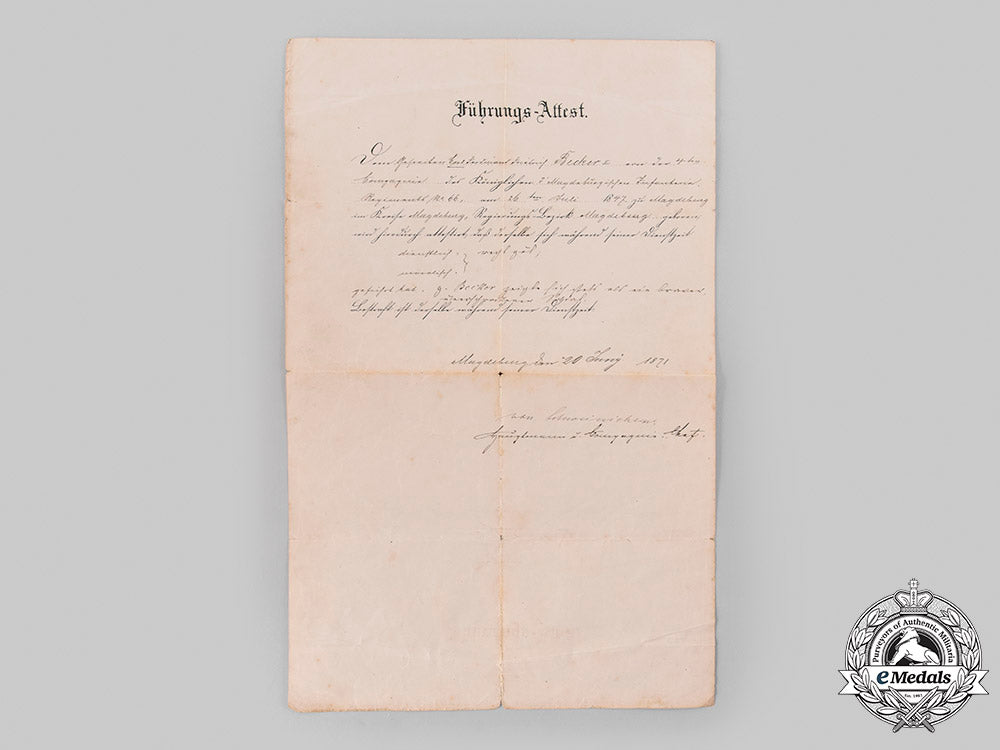 Führungs-Attest.
Dem Gefreiten Carl Ferdinand Heinrich Becker 2. von der 4ten
Compagnie des Königlichen 3. Magdeburgischen Infanterie-
Regiments No. 66, am 26ten Juli 1847 zu Magdeburg
im Kreise Magdeburg, Regierungs-Bezirk Magdeburg, geboren
wird hierdurch attestirt, daß derselbe sich während seiner Dienstzeit
dienstlich. } recht gut,
moralisch. }
geführt hat. g. Becker zeigte sich stets als ein braver,
Soldat.
Bestraft ist derselbe während seiner Dienstzeit
Magdeburg den 20 Juny 1871
von
Hauptmann u Compagnie-Chef.
Purveyors of Authentic Militaria
eMedals